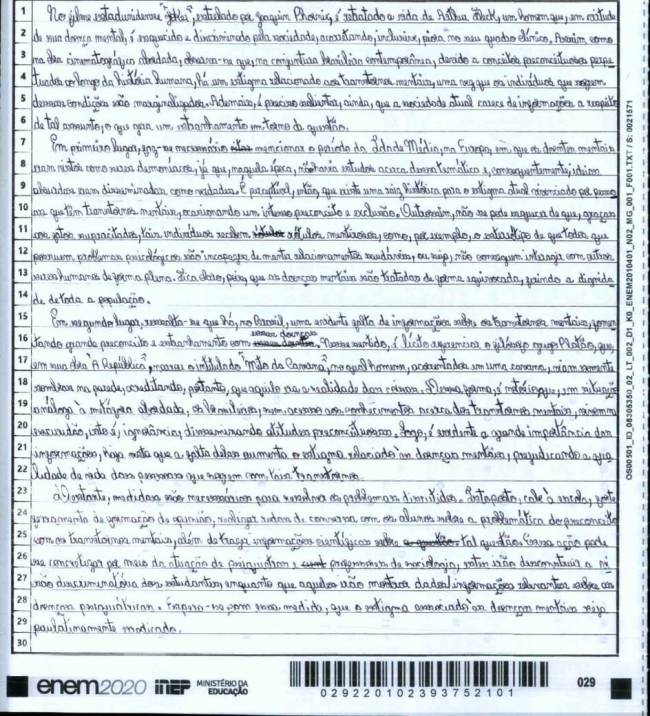 1 No filme estadunidense "Joker", estrelado por Joaquin Phoenix, é retratado a vida de Arthur Fleck, um homem que, em virtude
2 de sua doença mental, é esquecido e discriminado pela sociedade, acarretando, inclusive, piora no seu quadro clínico. Assim como
3 na obra cinematográfica abordada, observa-se que, na conjuntura brasileira contemporânea, devido a conceitos preconceituosos perpe-
4 tuados ao longo da história humana, há um estigma relacionado aos transtornos mentais, uma vez que os indivíduos que sofrem
5 dessas condições são marginalizados. Ademais, é preciso salientar, ainda, que a sociedade atual carece de informações a respeito
6 de tal assunto, o que gera um estranhamento em torno da questão.
7 Em primeiro lugar, faz-se necessário mencionar o período da Idade Média, na Europa, em que os doentes mentais
8 eram vistos como seres demoníacos, já que, naquela época, não havia estudos acerca dessa temática e, consequentemente, ideias
9 absurdas eram disseminadas como verdades. É perceptível, então, que existe uma raiz histórica para o estigma atual vivenciado por pesso-
10 as que têm transtornos mentais, ocasionando um intenso preconceito e exclusão. Outrossim, não se pode esquecer de que, graças
11 aos fatos supracitados, tais indivíduos recebem rótulos mentirosos, como, por exemplo, o estereótipo de que todos que
12 possuem problemas psicológicos são incapazes de manter relacionamentos saudáveis, ou seja, não conseguem interagir com outros
13 seres humanos de forma plena. Fica claro, pois, que as doenças mentais são tratadas de forma equivocada, ferindo a dignida-
14 de de toda a população.
15 Em segundo lugar, ressalta-se que há, no Brasil, uma evidente falta de informações sobre os transtornos mentais, fomen-
16 tando grande preconceito e estranhamento com essas doenças. Nesse sentido, é lícito referenciar o filósofo grego Platão, que,
17 em sua obra "A República", narrou o intitulado "Mito da Caverna", no qual homens, acorrentados em uma caverna, viam somente
18 sombras na parede, acreditando, portanto, que aquilo era a realidade das coisas. Dessa forma, é notório que, em situação
19 análoga à metáfora abordada, os brasileiros, sem acesso aos conhecimentos acerca dos transtornos mentais, vivem na
20 escuridão, isto é, ignorância, disseminando atitudes preconceituosas. Logo, é evidente a grande importância das
21 informações, haja vista que a falta delas aumenta o estigma relacionado às doenças mentais, prejudicando a qua-
22 lidade de vida das pessoas que sofrem com tais transtornos.
23 Destarte, medidas são necessárias para resolver os problemas discutidos. Isto posto, cabe à escola, forte
24 ferramenta de formação de opinião, realizar rodas de conversa com os alunos sobre a problemática do preconceito
25 com os transtornos mentais, além de trazer informações científicas sobre tal questão. Essa ação pode
26 se concretizar por meio da atuação de psiquiatras e professores de sociologia, estes irão desconstruir a vi-
27 são discriminatória dos estudantes, enquanto que aqueles irão mostrar dados/informações relevantes sobre as
28 doenças psiquiátricas. Espera-se, com essa medida, que o estigma associado às doenças mentais seja
29 paulatinamente erradicado.
30
OS00501_ID_08306350_02_LT_002_D1_K0_ENEM2010401_N02_MG_001_F001.TXT / S: 0021571
enem2020 inep MINISTÉRIO DA EDUCAÇÃO
029220102393752101
029